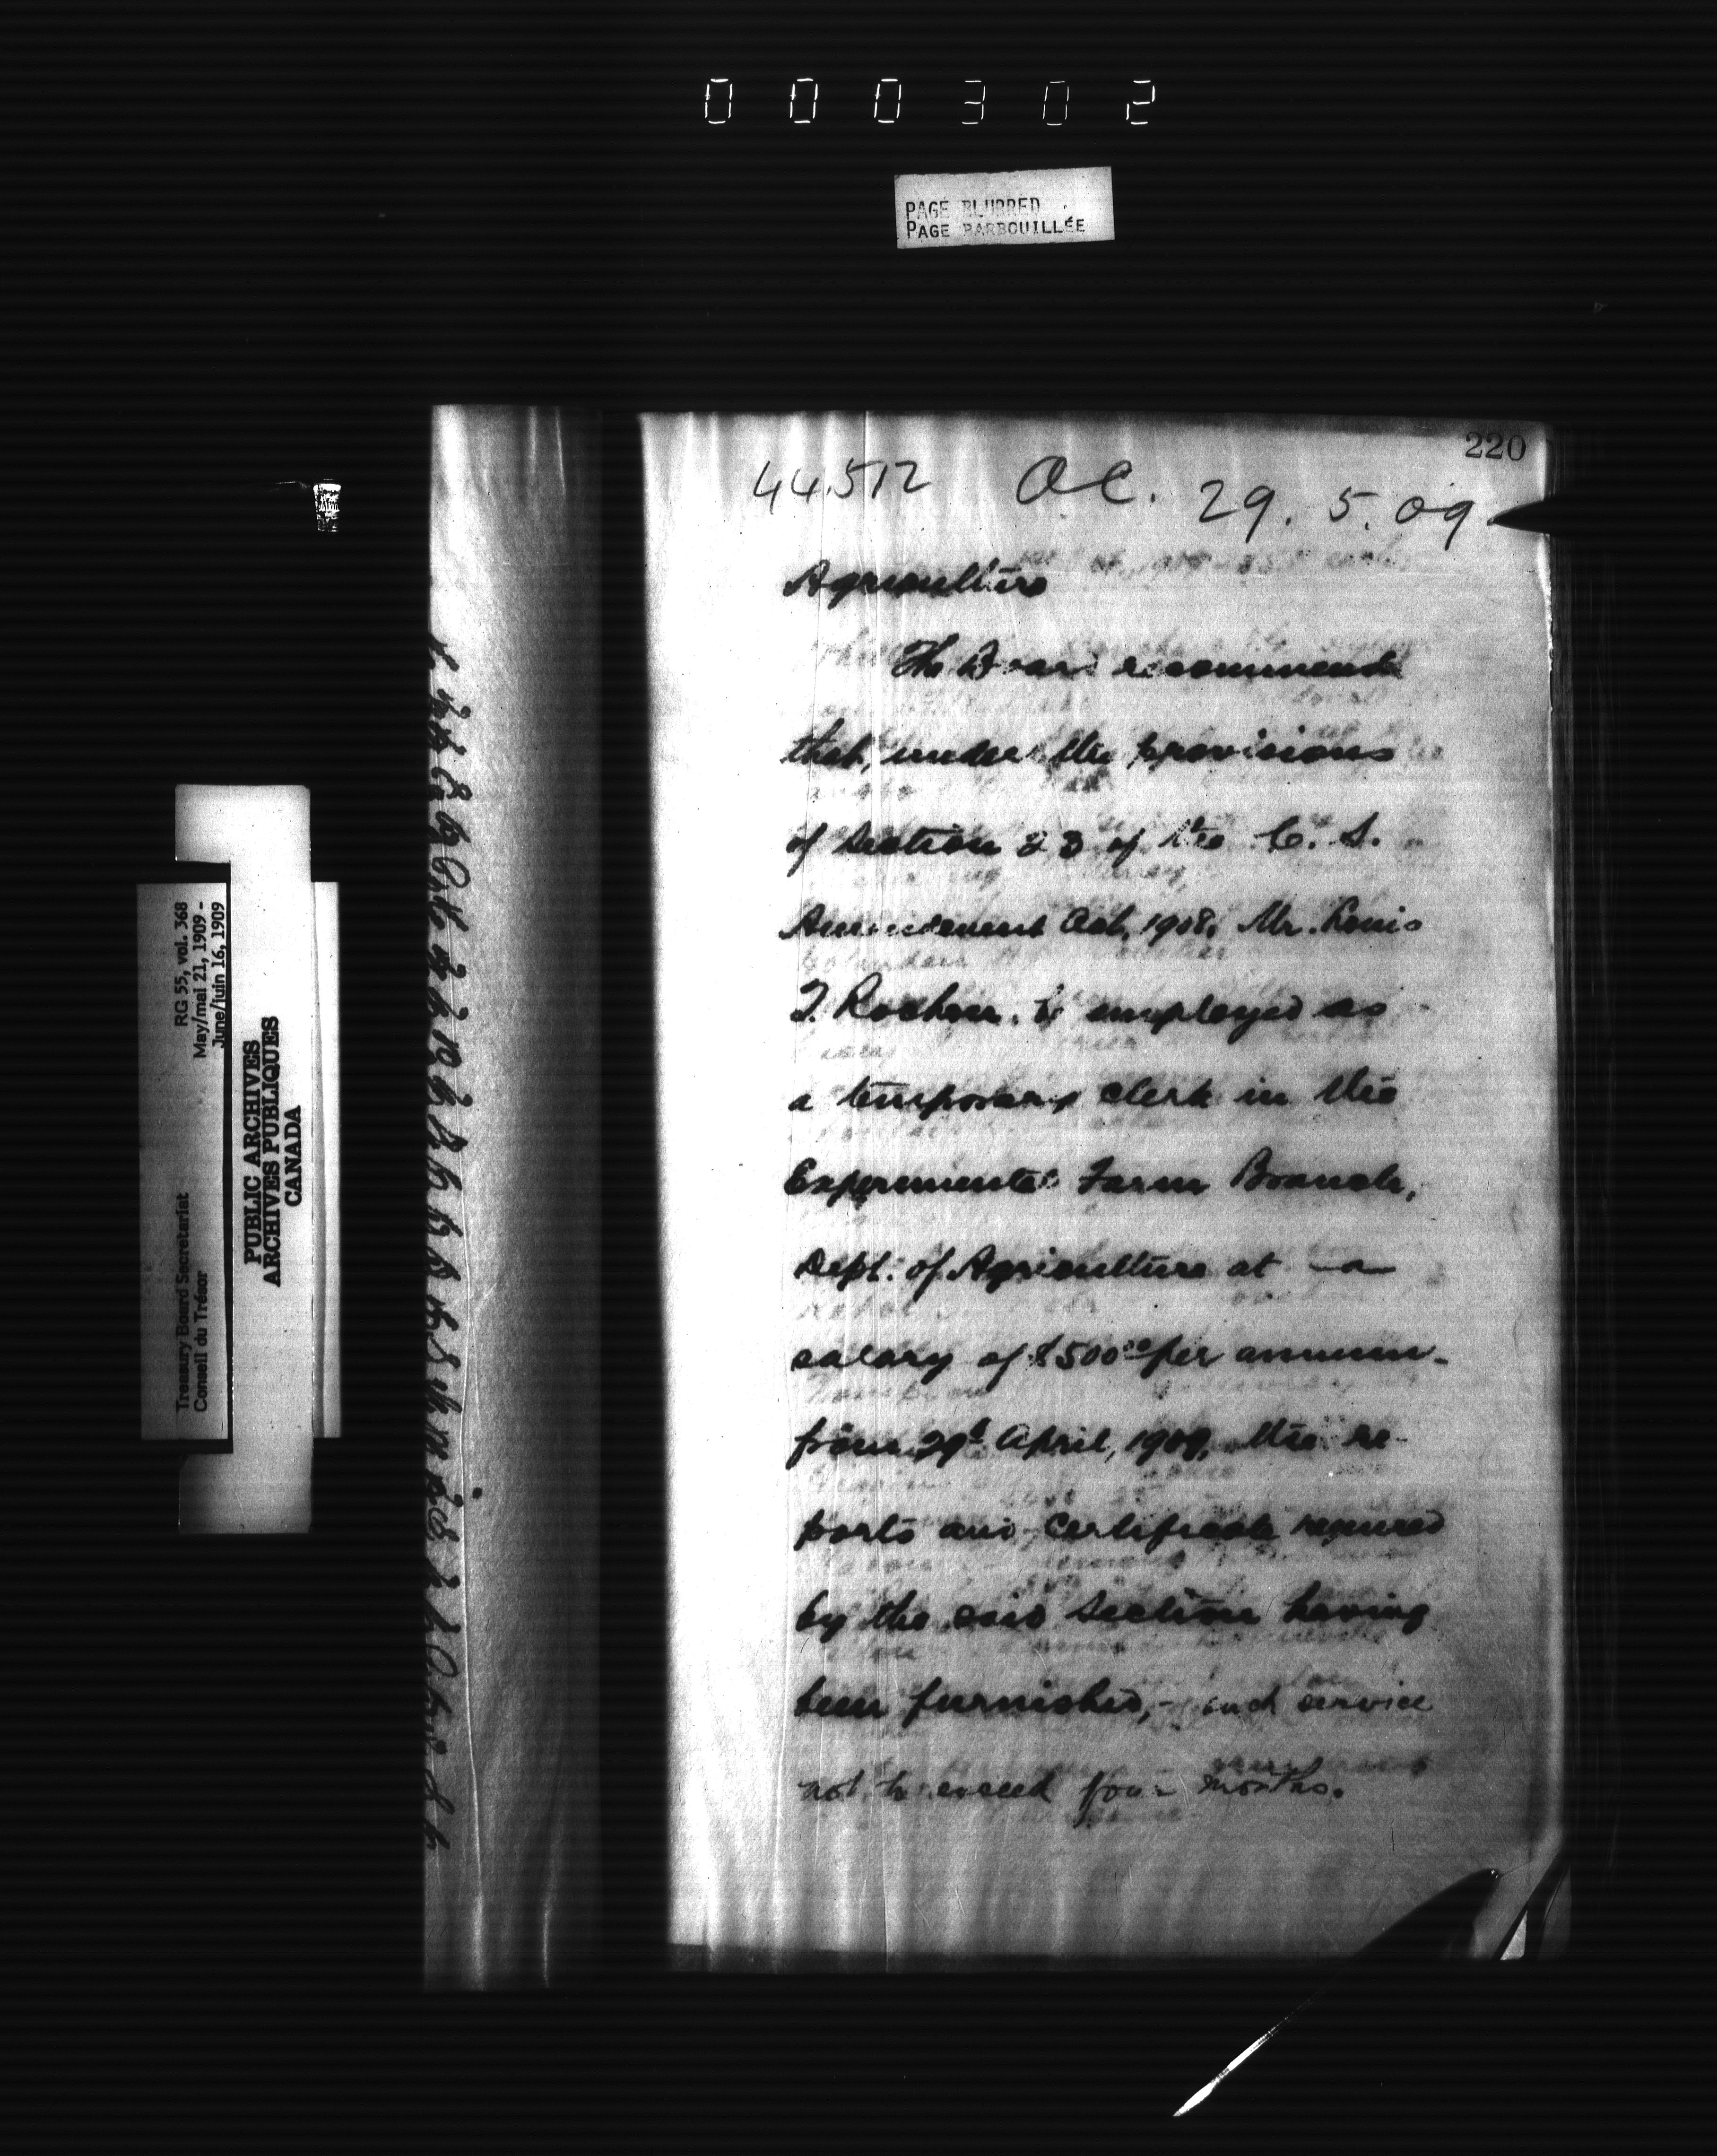 000302
PAGE BLURRED
PAGE BARBOUILLÉE
220
44512 OC. 29. 5. 09
Agriculture
The Board recommend
that, under the provisions
of Section 23 of the C. S.
Amendment Act, 1908, Mr. Louis
J. Rochon, be employed as
a temporary clerk in the
Experimental Farm Branch,
Dept. of Agriculture at a
salary of $500.00 per annum
from 29th April, 1909, the re-
ports and certificate required
by the said Section having
been furnished,- such service
not to exceed four months.
Treasury Board Secretariat RG 55, vol. 368
Conseil du Trésor May/mai 21, 1909 -
June/juin 16, 1909
PUBLIC ARCHIVES
ARCHIVES PUBLIQUES
CANADA